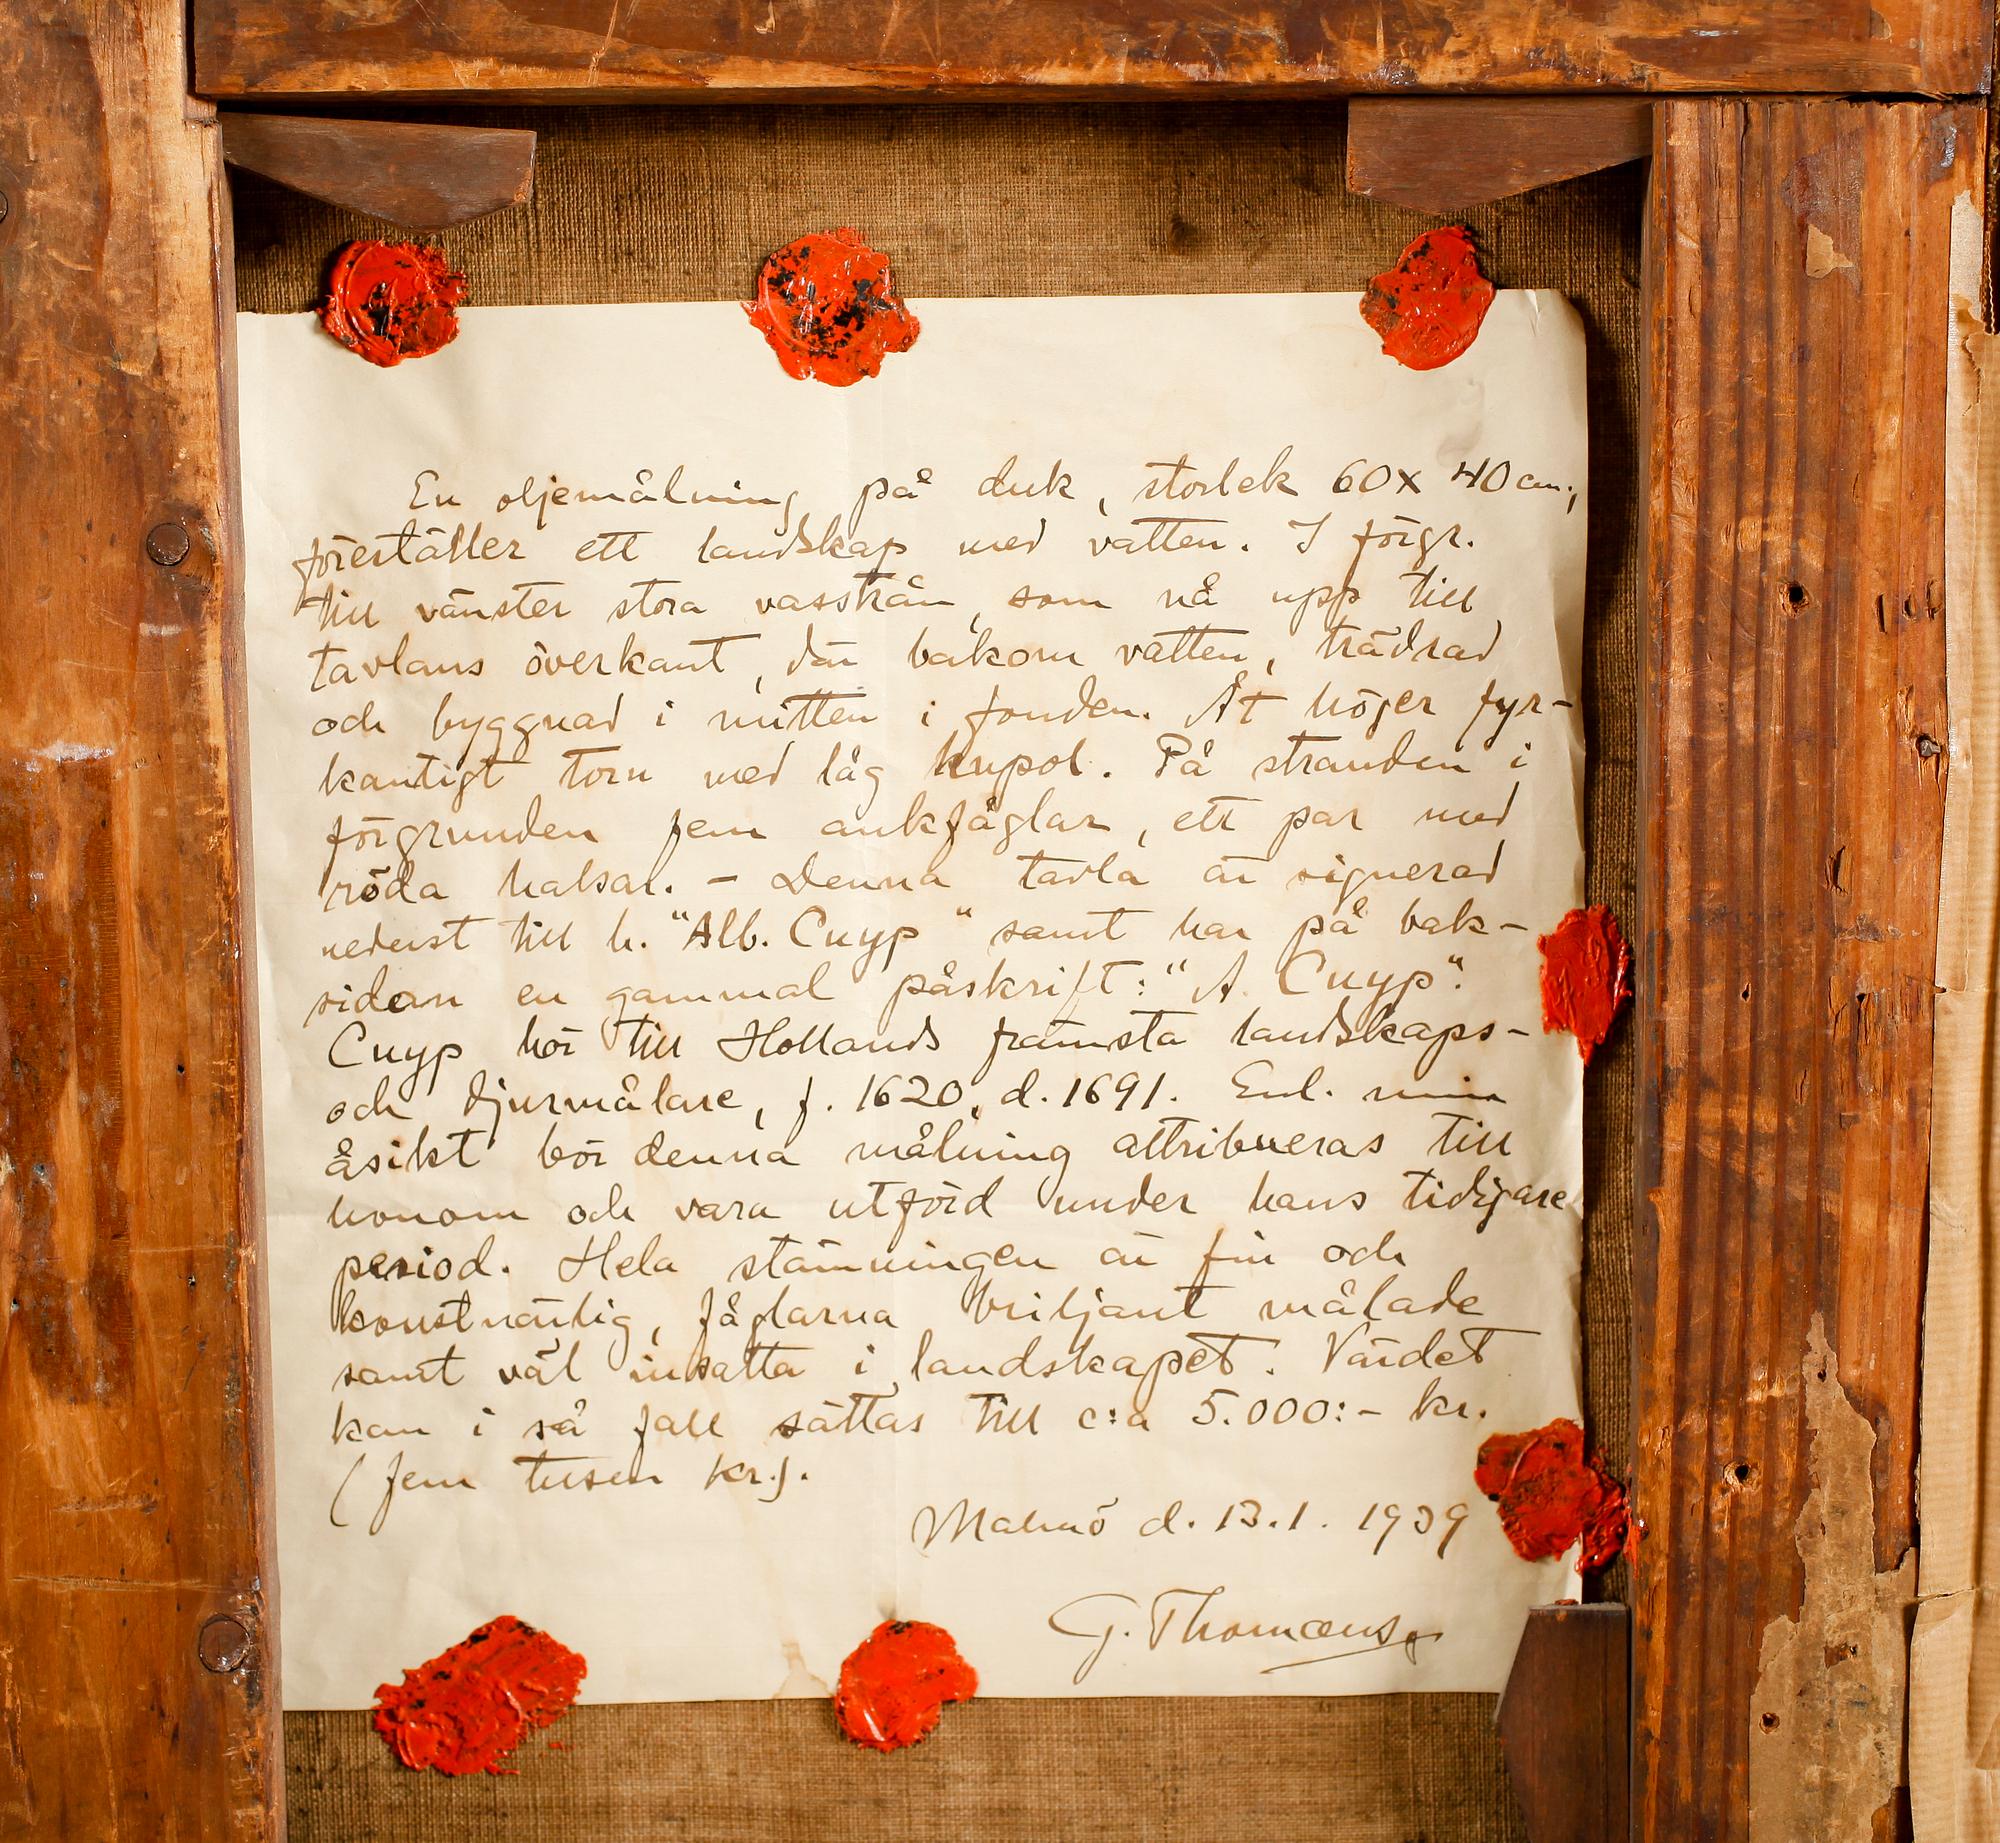 En oljemålning på duk, storlek 60x40 cm.,
föreställer ett landskap med vatten. I förgr.
till vänster stora vasstrån, som nå upp till
tavlans överkant, där bakom vatten, trädrad
och byggnad i mitten i fonden. Åt höger fyr-
kantigt torn med låg kupol. På stranden i
förgrunden fem ankfåglar, ett par med
röda halsar. - Denna tavla är signerad
nederst till h. "Alb. Cuyp" samt har på bak-
sidan en gammal påskrift: "A. Cuyp".
Cuyp hör till Hollands främsta landskaps-
och djurmålare, f. 1620, d. 1691. Enl. min
åsikt bör denna målning attribueras till
honom och vara utförd under hans tidigare
period. Hela stämningen är fin och
konstnärlig, fåglarna briljant målade
samt väl insatta i landskapet. Värdet
kan i så fall sättas till c:a 5.000:- kr.
(fem tusen kr.).
Malmö d. 13.1. 1939
G. Thomæus